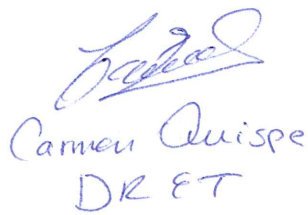 Carmen Quispe
DRET